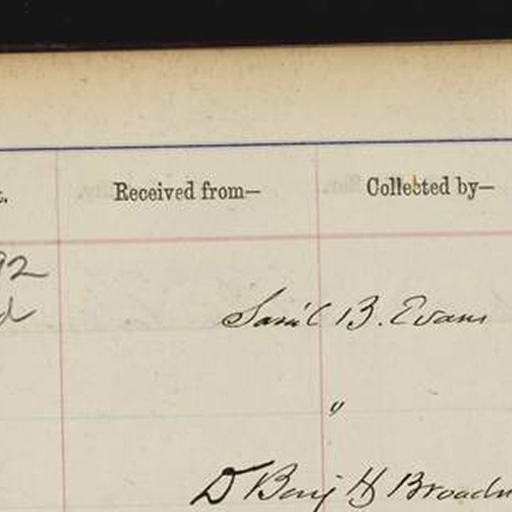 Received from— Collected by—
92
Sam'l B. Evans
"
D Benj H